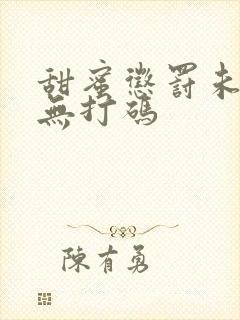 甜蜜懲罰未
無打碼
陳有勇